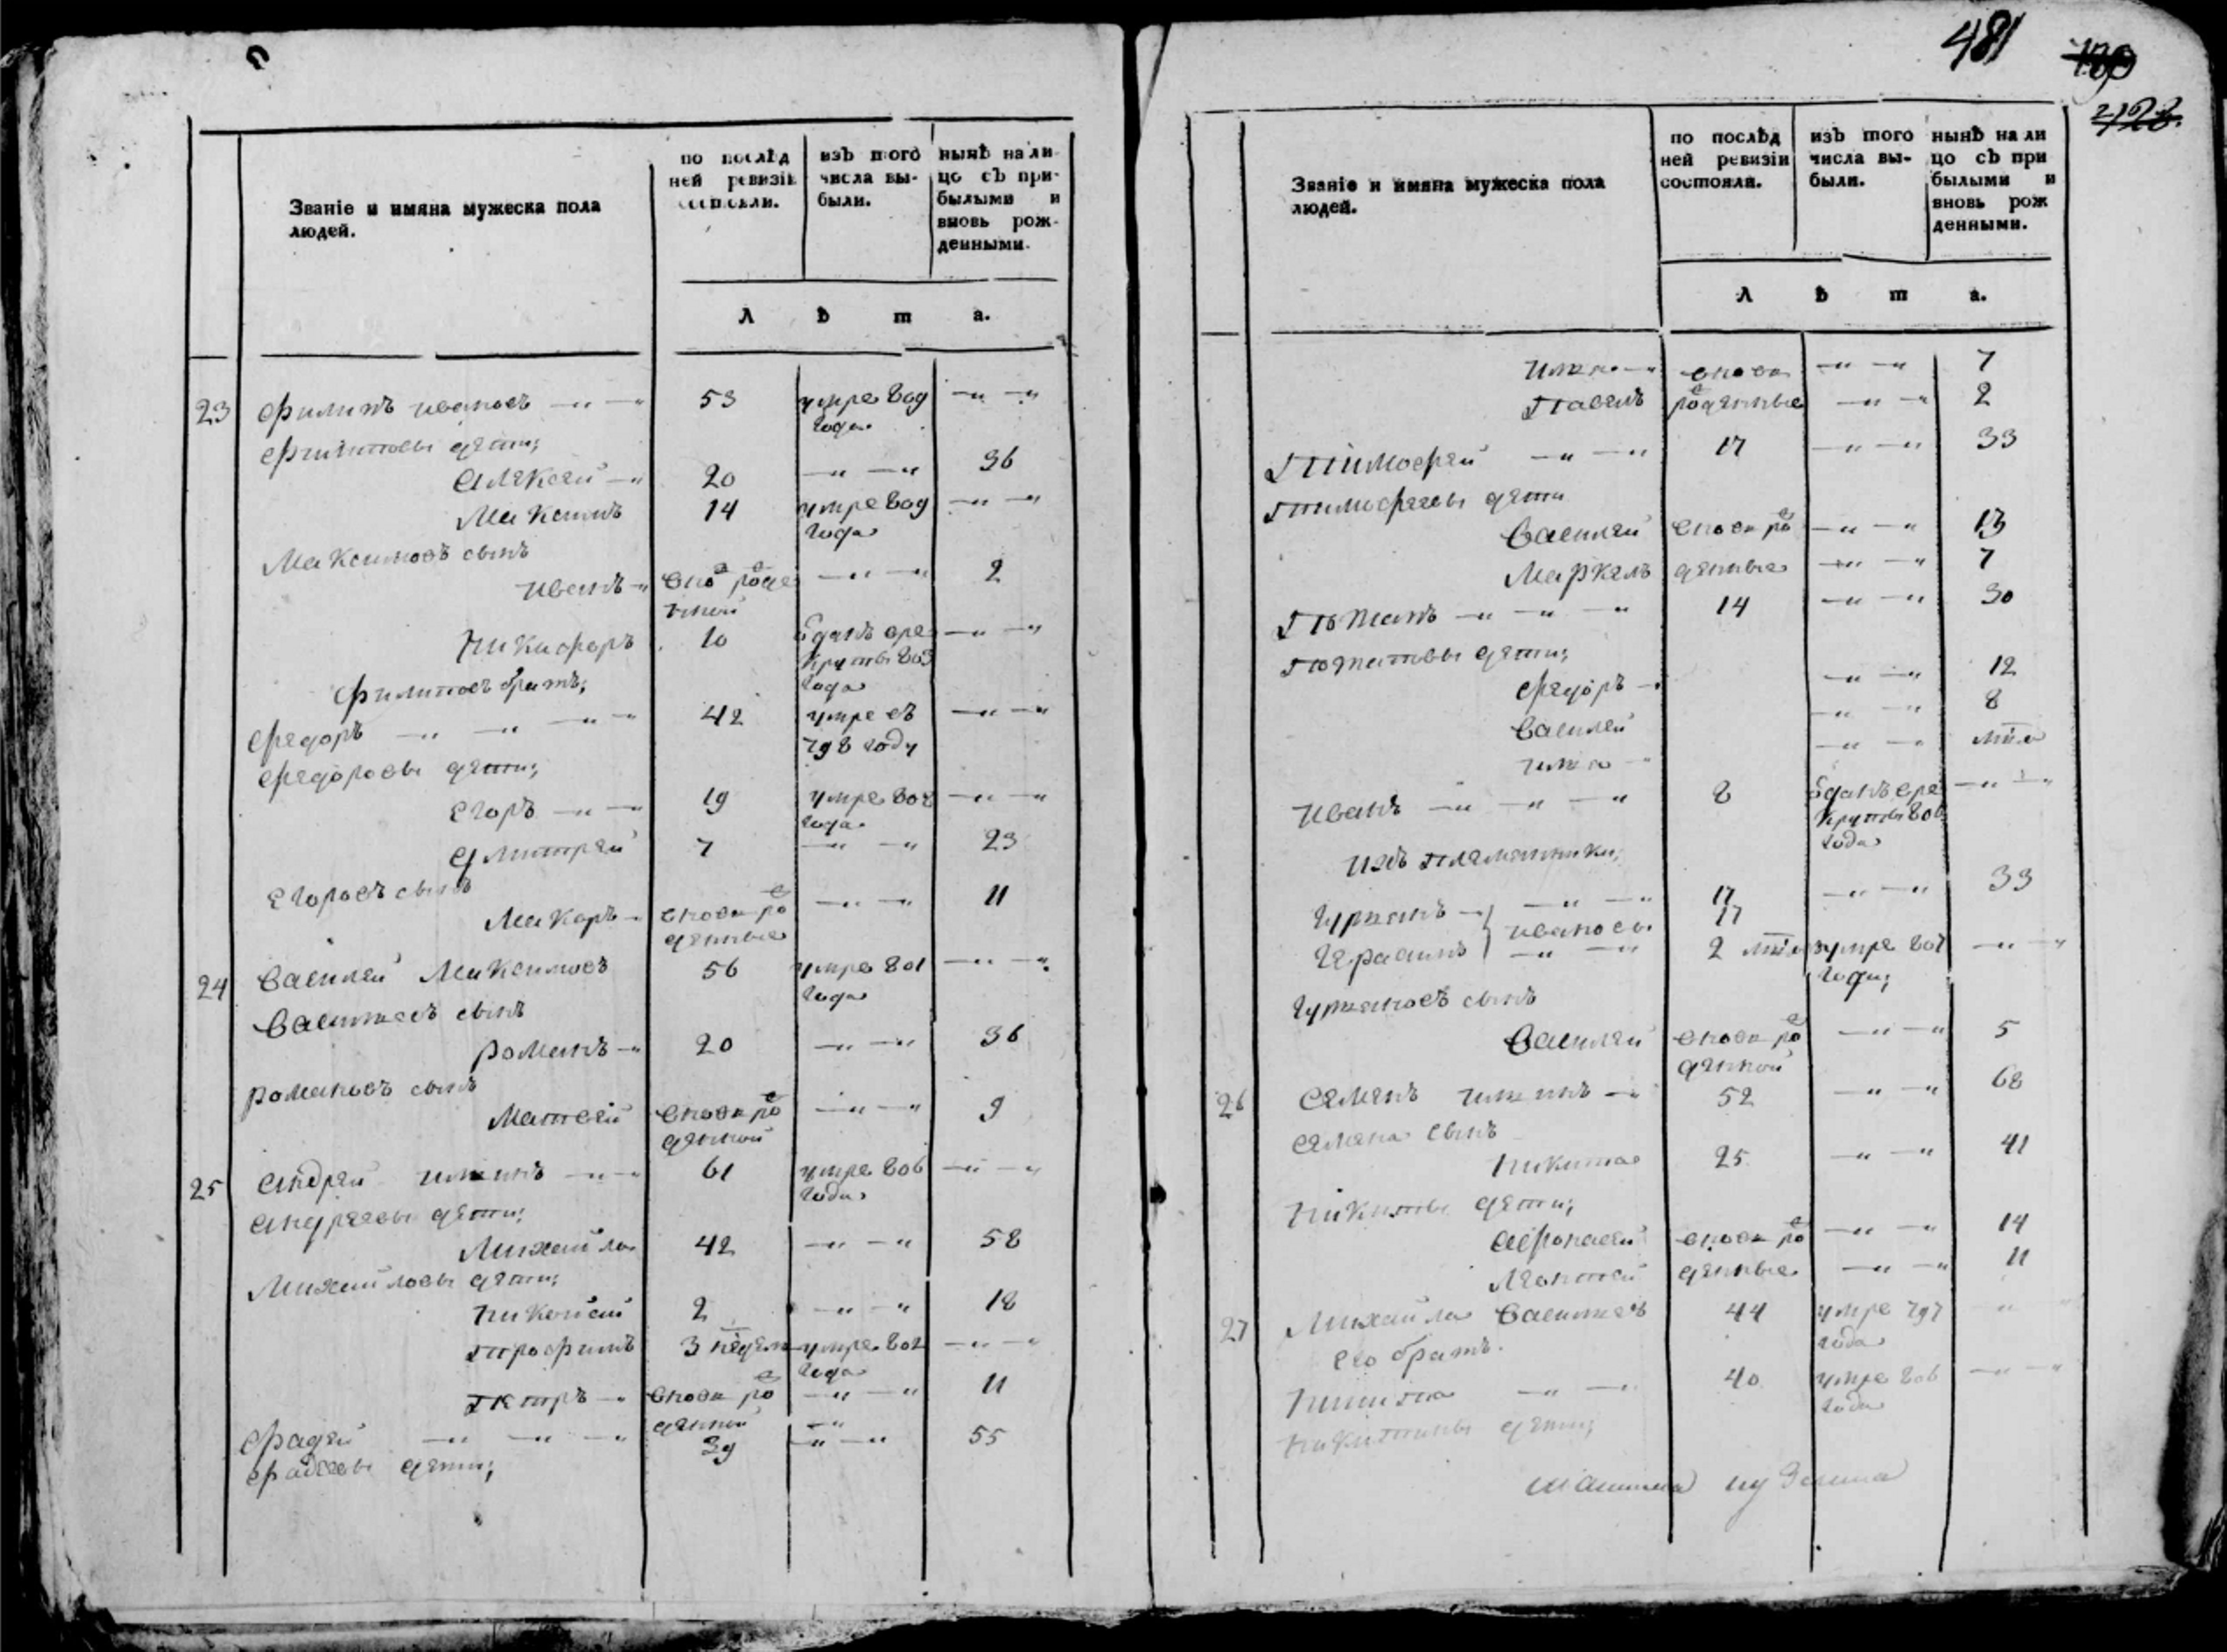 Званіе и имяна мужеска пола людей.
по послѣд ней ревизіи состояли.
изъ того числа вы- были.
нынѣ на ли- цо съ при- былыми и вновь рож- денными.
Л ѣ т а.
23 Филипъ ивановъ 53 умре 809 года
Филиповы дети;
Алексей 20 36
Максимъ 14 умре 809 года
Максимовъ сынъ
иванъ вно рожде нной 2
никифоръ 10 отданъ вре круты 803 года
Филиповъ братъ;
Федоръ 42 умре въ 798 году
Федоровы дети;
Егоръ 19 умре 802 года
Дмитрей 7 23
Егоровъ сынъ
Макаръ вновь ро жденные 11
24 Василей Максимовъ 56 умре 801 года
Васильевъ сынъ
романъ 20 36
романовъ сынъ
Матвей вновь ро жденной 9
25 Андрей ильинъ 61 умре 806 года
Андреевы дети;
Михайла 42 58
Михайловы дети;
николай 2 18
трофимъ 3 недели умре 802 года
петръ вновь ро жденной 11
Фадей 39 55
Фадеевы дети;
481
Званіе и имяна мужеска пола людей.
по послѣд ней ревизіи состояли.
изъ того числа вы- были.
нынѣ на ли цо съ при былыми и вновь рож денными.
Л ѣ т а.
илья вновь 7
Павелъ рожденные 2
Тимофей 17 33
Тимофеевы дети
Василей вновь ро 13
Маркелъ жденные 7
Потапъ 14 30
Потаповы дети;
Федоръ 12
Василей 8
илья
иванъ 8 отданъ вре круты 806 года
ихъ племянники;
Гурьянъ 17 33
17
ивановы
Герасимъ 2 умре 807 года;
Гурьяновъ сынъ
Василей вновь ро жденной 5
26 Семенъ ильинъ 52 68
Семена сынъ
никита 25 41
никиты дети;
Афонасей вновь ро 14
Леонтей жденные 11
27 Михайла Васильевъ 44 умре 797 года
его братъ.
никита 40 умре 806 года
никитины дети;